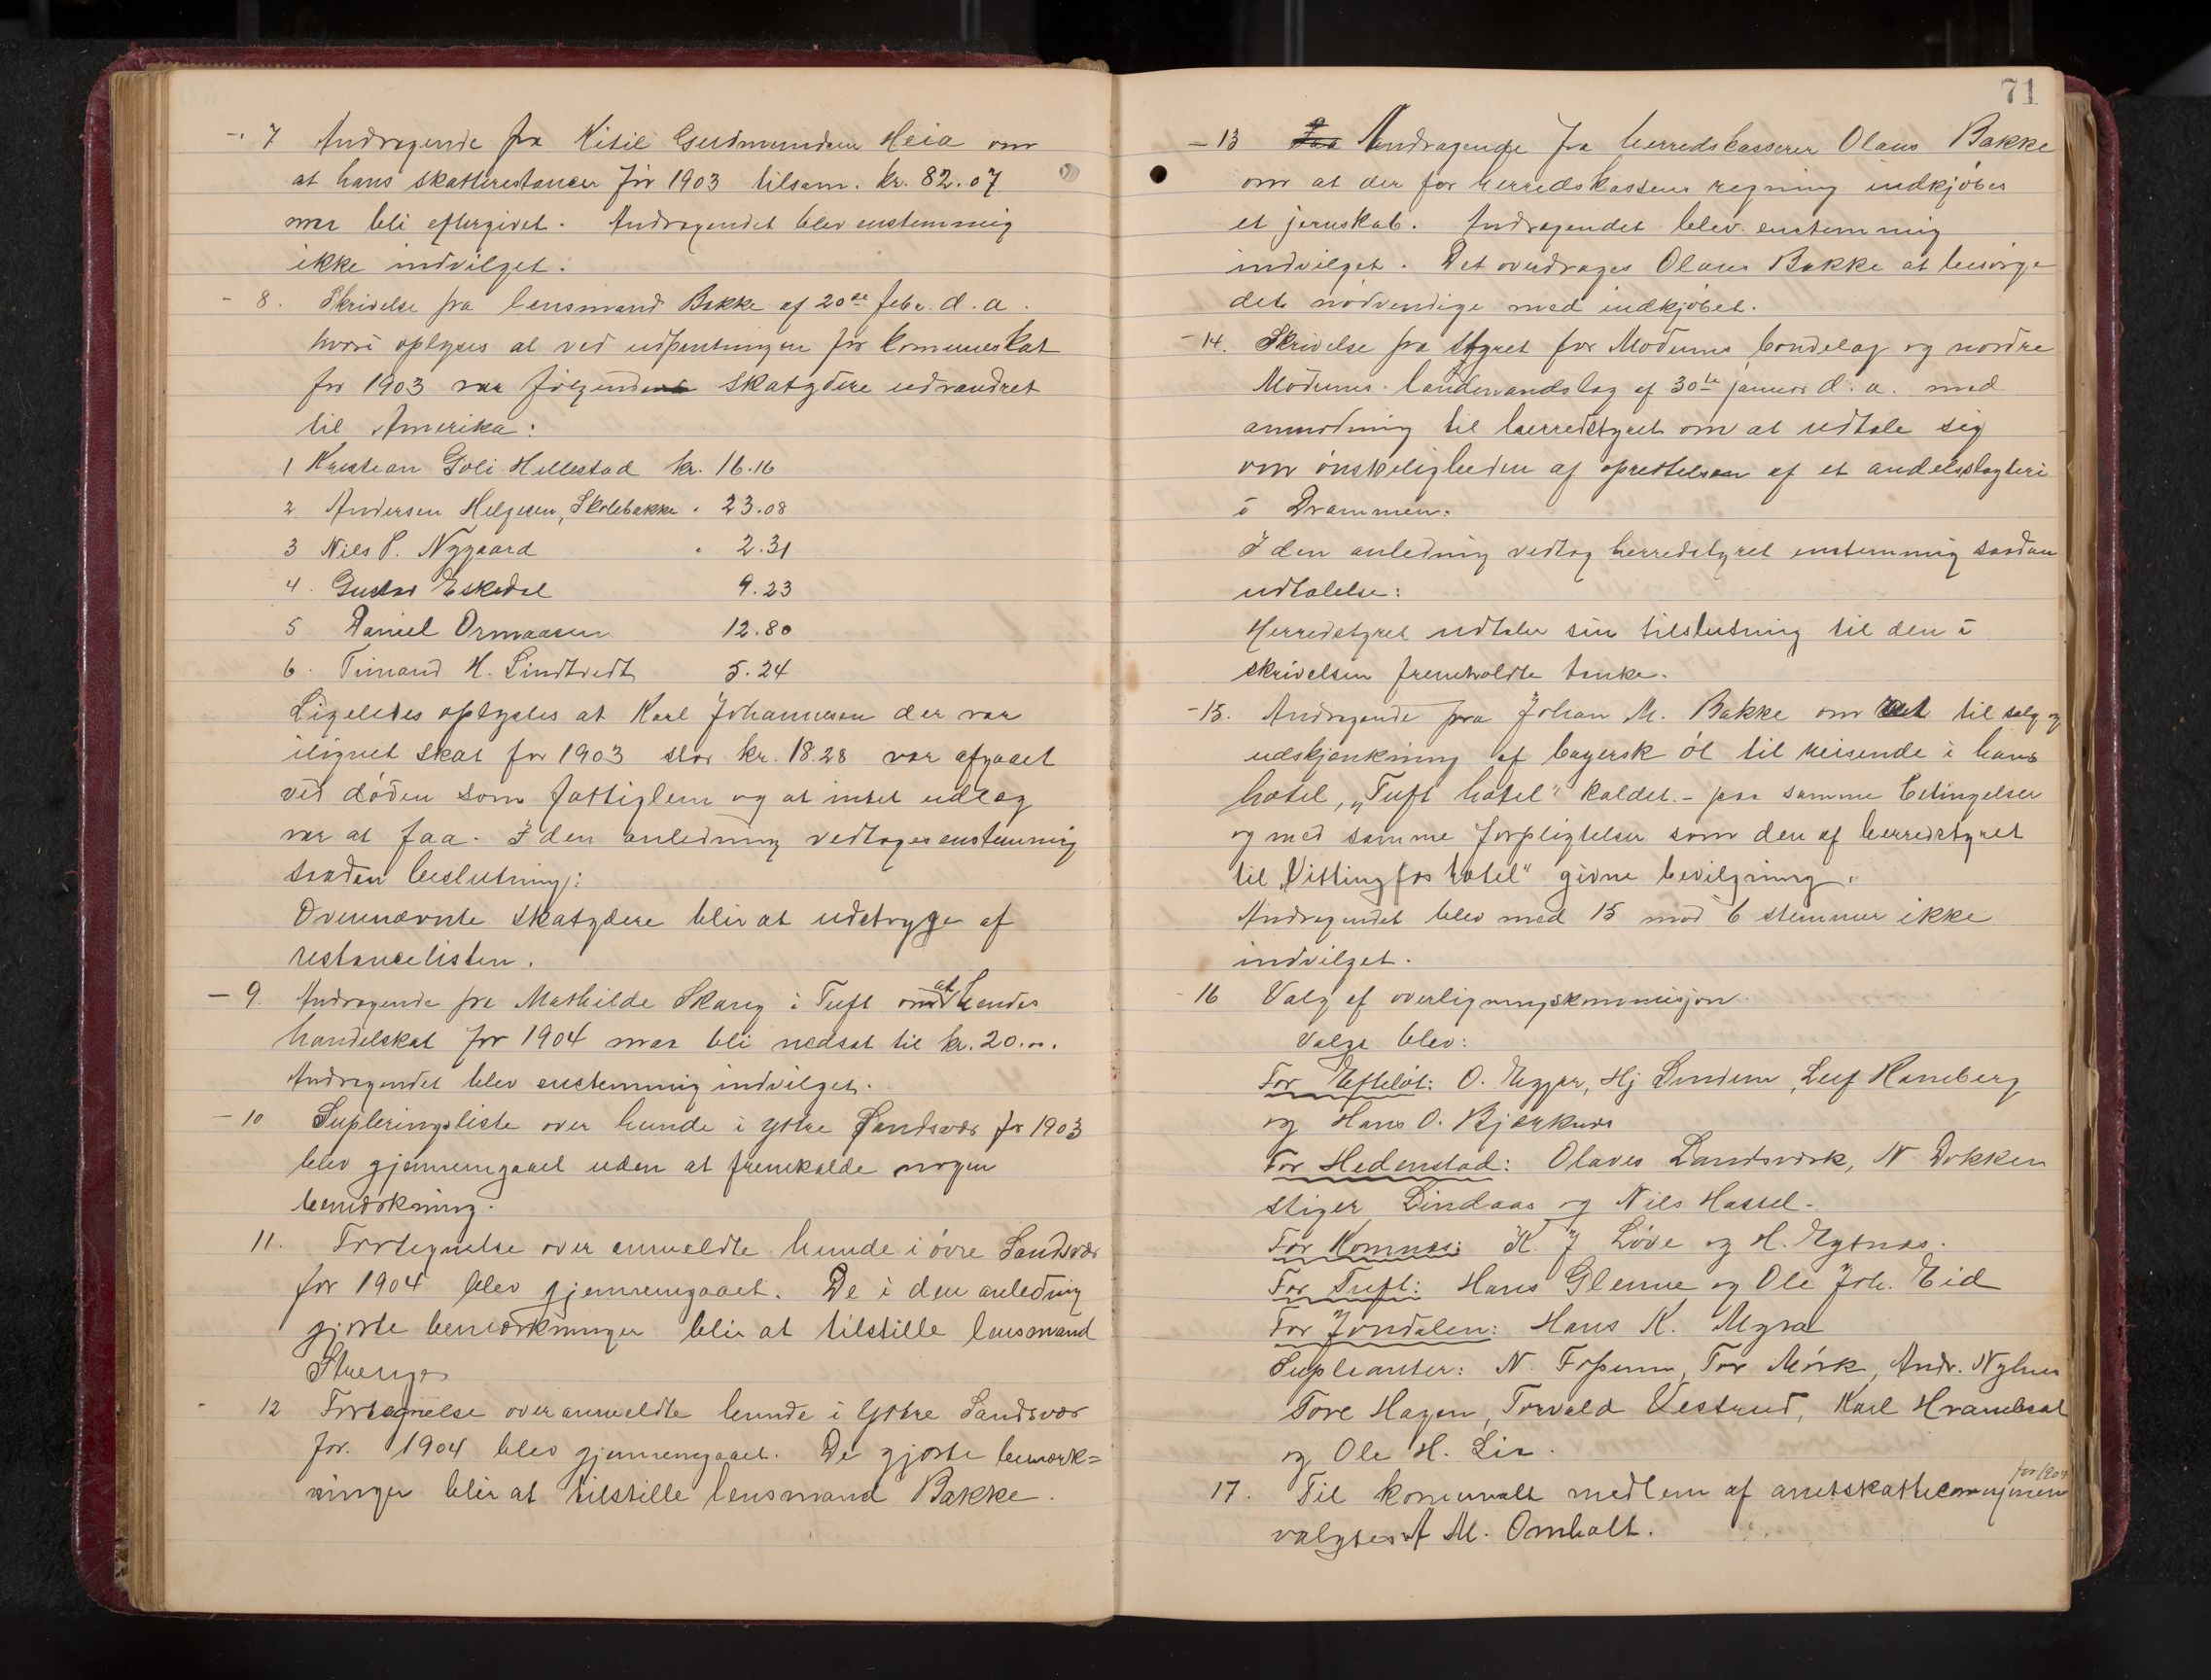 -. 7 Andragende fra Kitil Gudmundsen Heia om
at hans skatterestancer for 1903 tilsam. kr. 82.07
maa bli eftergivet. Andragendet blev enstemmig
ikke indvilget.
- 8. Skrivelse fra lensmand Bakke af 20de febr. d. a.
hvori oplyses at ved udpantningen for komuneskat
for 1903 var følgende skatydere udvandret
til Amerika:
1 Kristian Goli Hellestad kr. 16.16
2 Andersen Helgesen, Skolebakke " 23.08
3 Nils P. Nygaard " 2.31
4. Gustav Eskedal 9.23
5 Daniel Ormaasen 12.80
6. Timand H. Lindtvedt 5.24
Ligeledes oplystes at Karl Johannesen der var
ilignet skat for 1903 stor kr. 18.28 var afgaaet
ved døden som fattiglem og at intet udlæg
var at faa. I den anledning vedtoges enstemmig
saadan beslutning:
Ovennævnte skatydere blir at udstryge af
restancelisten.
- 9. Andragende fra Mathilde Skarg i Tuft om at hendes
handelskat for 1904 maa bli nedsat til kr. 20.00.
Andragendet blev enstemmig indvilget.
- 10 Supleringsliste over hunde i ytre Sandsvær for 1903
blev gjennemgaaet uden at fremkalde nogen
bemærkning.
11. Fortegnelse over anmeldte hunde i øvre Sandsvær
for 1904 blev gjennemgaaet. De i den anledning
gjorte bemærkninger blir at tilstille lensmand
Strenge
- 12 Fortegnelse over anmeldte hunde i Ytre Sandsvær
for 1904 blev gjennemgaaet. De gjorte bemærk=
ninger blir at tilstille lensmand Bakke.
71
- 13 Fra Andragende fra herredskasserer Olaus Bakke
om at der for herredskassens regning indkjøbes
et jernskab. Andragendet blev enstemmig
indvilget. Det overdrages Olaus Bakke at besørge
det nødvendige med indkjøbet.
- 14. Skrivelse fra styret for Modums bondelag og nordre
Modums landmandslag af 30te januar d. a. med
anmodning til herredstyret om at udtale sig
om ønskeligheden af oprettelsen af et andelsslagteri
i Drammen.
I den anledning vedtog herredstyret enstemmig saadan
udtalelse:
Herredstyret udtaler sin tilslutning til den i
skrivelsen fremholdte tanke.
- 15. Andragende fra Johan M. Bakke om ret til salg og
udskjænkning af bayersk øl til reisende i hans
hotel, "Tuft hotel" kaldet. - paa samme betingelser
og med samme forpligtelser som den af herredstyret
til "Vittingfos hotel" givne bevilgning.
Andragendet blev med 15 mod 6 stemmer ikke
indvilget.
- 16 Valg af overligningskommisjon.
Valgt blev:
For Efteløt: O. Egger, Hj Lunden, Leif Hamberg
og Hans O. Bjerknes
For Hedenstad: Olaves Landsværk, N Dokken
stiger Lindaas og Nils Hassel.
For Komnes: K. J Løve og H. Eytnes.
For Tuft: Hans Glenne og Ole Joh. Eid
For Jondalen: Hans K. Myra
Supleanter: N. Fossum, Tov Mørk, Andr. Nyhus
Tore Hagen, Torvald Vestrud, Karl Hrambsal
og Ole H. Lia.
17. Til komunalt medlem af amtskattecomisjonen for 1904
valgtes A M. Omholt.